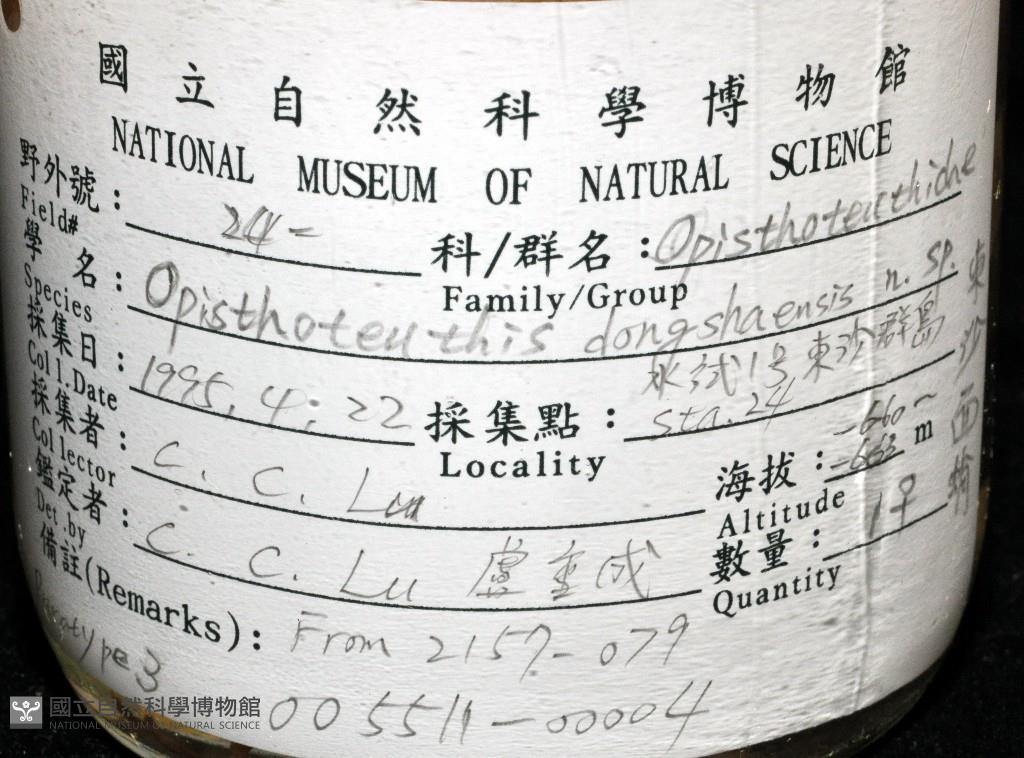 國立自然科學博物館
NATIONAL MUSEUM OF NATURAL SCIENCE
野外號： 24-
Field#
科/群名：Opisthoteuthidae
Family/Group
學名：Opisthoteuthis dongshaensis n. sp.
Species
水試1号 東沙群島
東沙西
採集日：1995. 4. 22
Coll.Date
採集點： sta. 24
Locality
採集者： C. C. Lu
Collector
海拔： -660~-663 m
Altitude
鑑定者： C. C. Lu 盧重成
Det.by
數量： 1♀
Quantity
備註(Remarks): From 2157-079
type 3
005511-00004
國立自然科學博物館
NATIONAL MUSEUM OF NATURAL SCIENCE